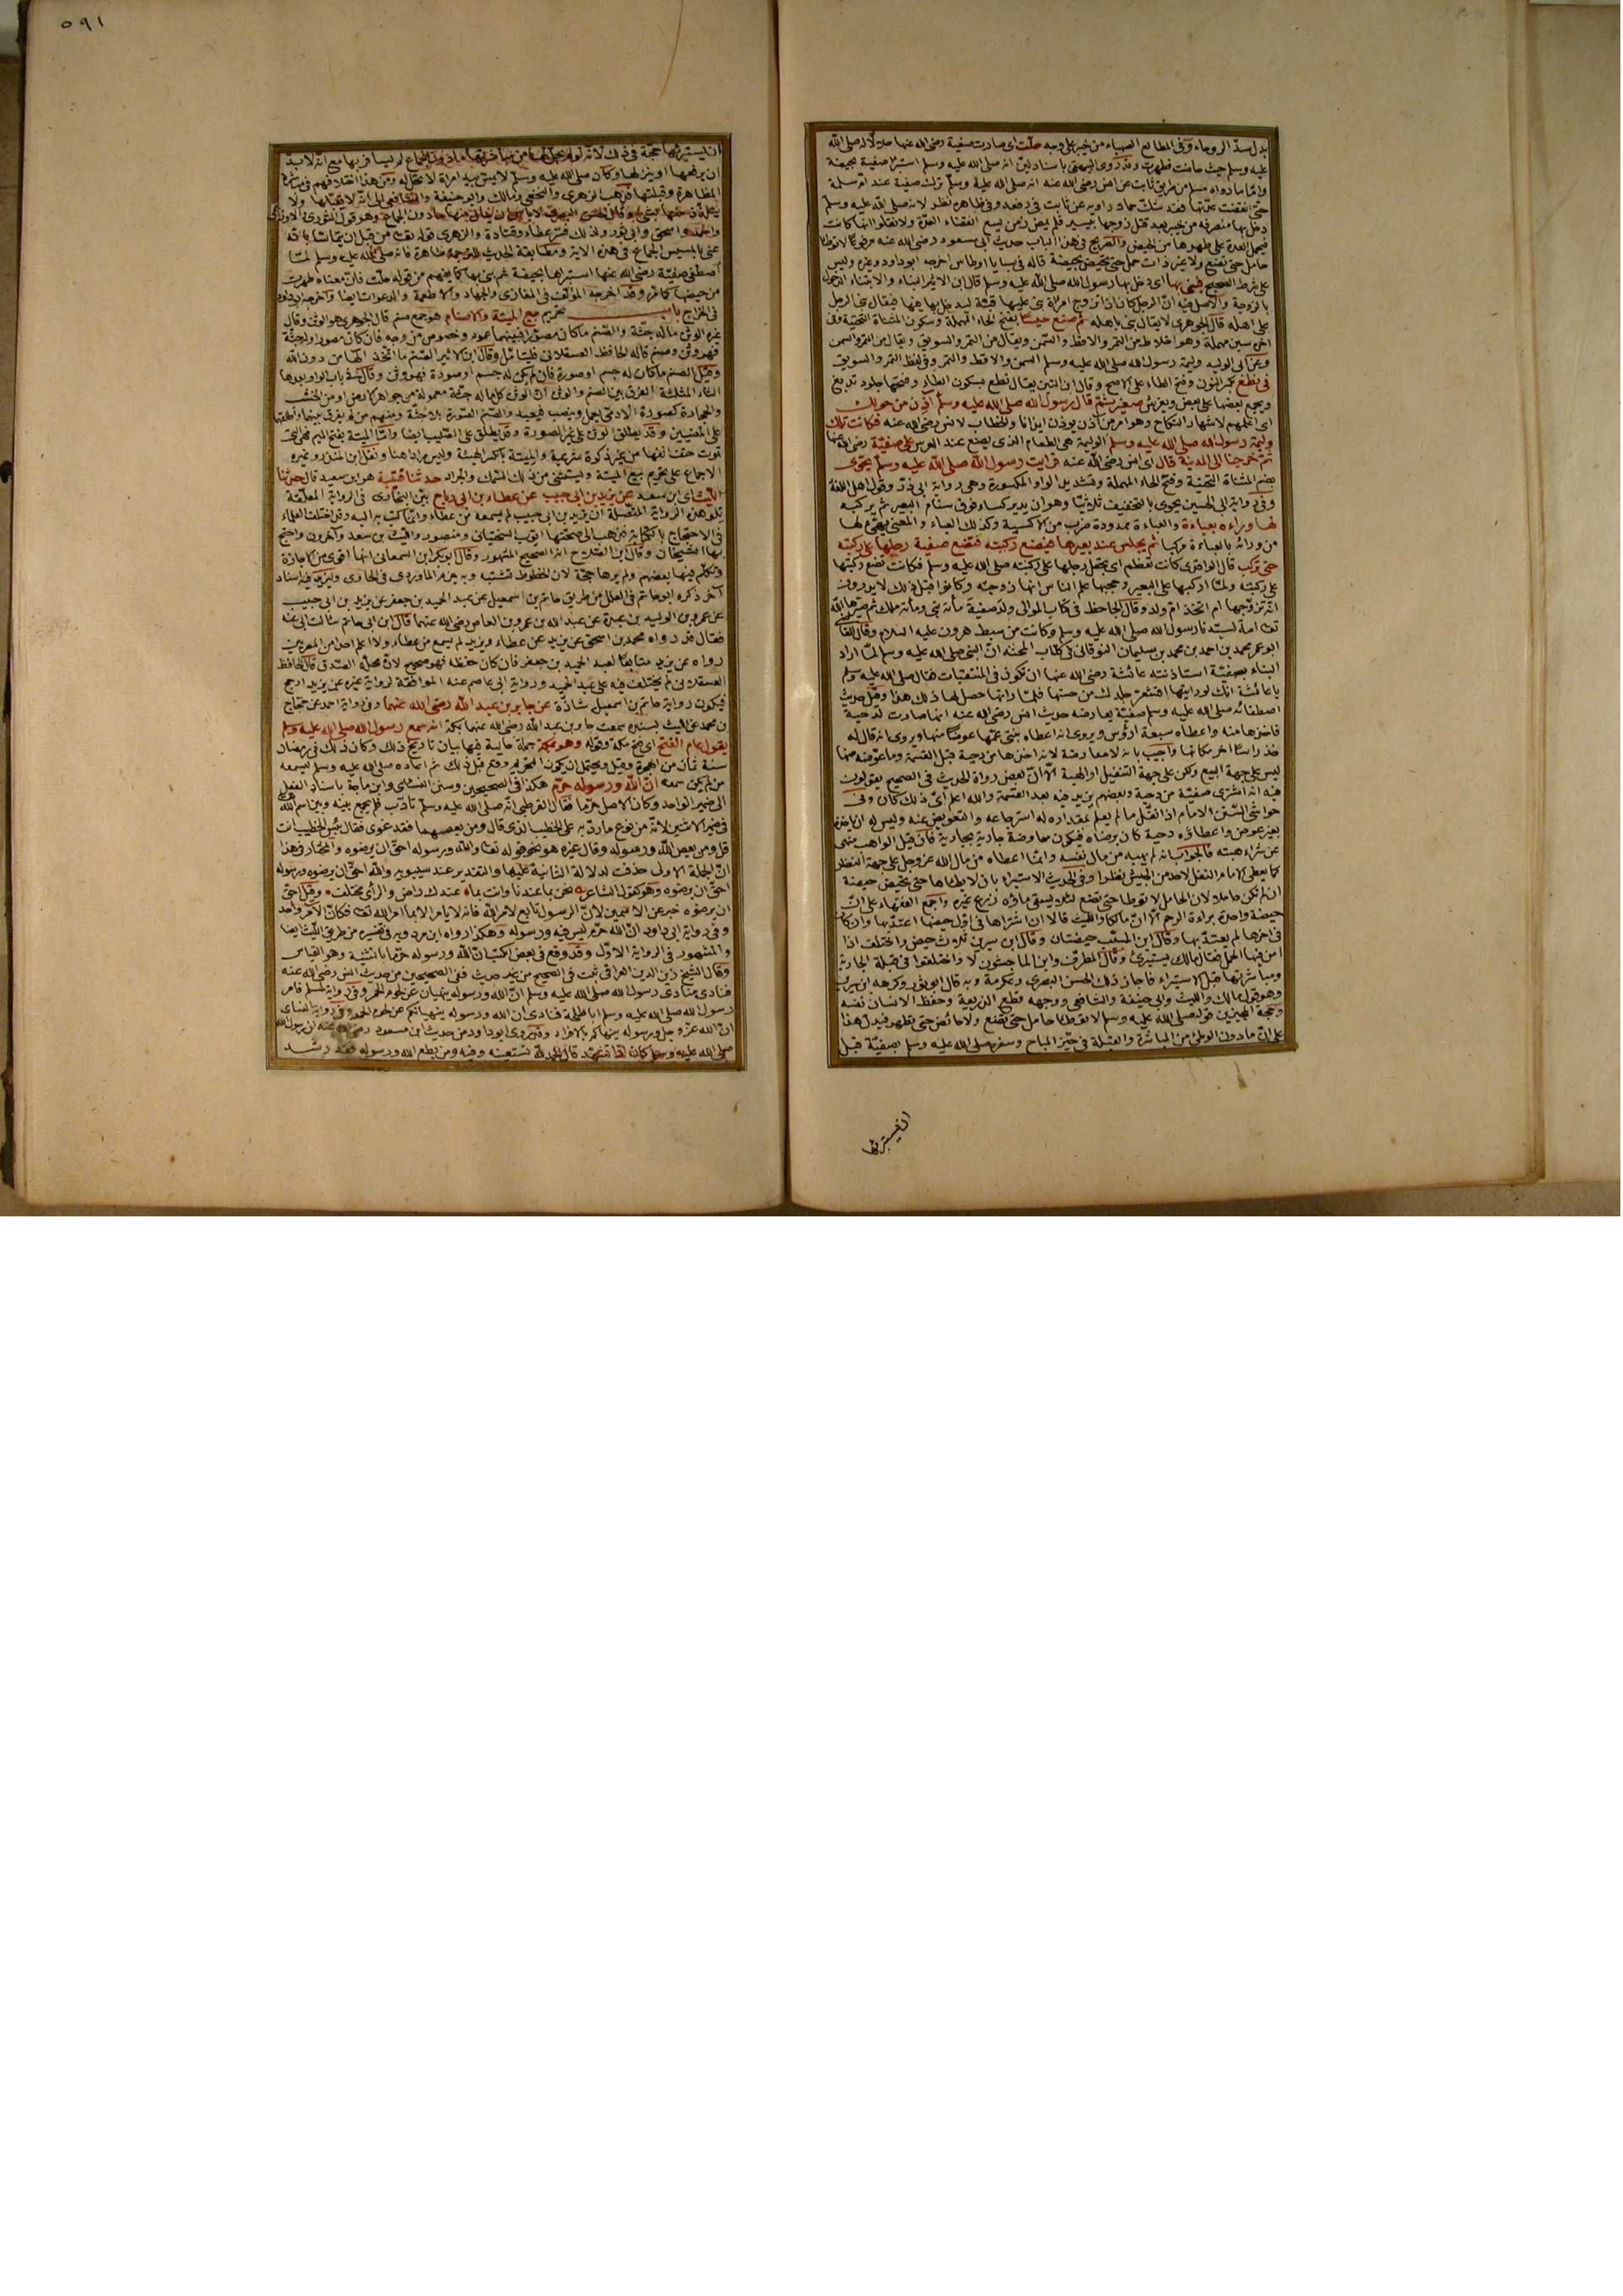 بدل سدّ الروحاء وفى المطالع الصهباء من خيبر على روحة حلّت اى صارت صفية رضى الله عنها حلالا له صلى الله
عليه وسلم حيث حاضت فطهرت وقد روى البيهقى باسناد ليّن انه صلى الله عليه وسلم استبرأ صفية بحيضة
وامّا ما رواه مسلم من طريق ثابت عن انس رضى الله عنه انه صلى الله عليه وسلّم ترك صفية عند امّ سليم
حتى انقضت عدّتها فقد شكّ حماد راويه عن ثابت فى رفعه وفى ظاهره نظر لانه صلى الله عليه وسلم
دخل بها منصرفه من خيبر بعد قتل زوجها بيسير فلم يمض زمن يسع انقضاء العدّة ولا نقلوا انها كانت
حامل حتى تضع ولا غير ذات حمل حتى تحيض بحيضة قاله فى سبايا اوطاس اخرجه ابو داود وغيره وليس
على شرط الصحيح فبنى بها اى دخل بها رسول الله صلى الله عليه وسلم قال ابن الاثير البناء والابتناء الدخول
بالزوجة والاصل فيه انّ الرجل كان اذا تزوج امرأة بنى عليها قبّة ليدخل بها فيها فيقال بنى الرجل
على اهله قال الجوهرى لا يقال بنى باهله ثم صنع حيسا بفتح الحاء المهملة وسكون المثناة التحتية وفى
اخره سين مهملة وهو اخلاط من التمر والاقط والسمن ويقال من التمر والسويق ويقال من التمر والسمن
وعن ابى الوليد وليمة رسول الله صلى الله عليه وسلم السمن والاقط والتمر وفى لفظ التمر والسويق
فى نطع بكسر النون وفتح الطاء على الاصح وقال ابن التين يقال نطع بسكون الطاء وفتحها جلود تدبغ
ويجمع بعضها على بعض ويفرش صغير ثم قال رسول الله صلى الله عليه وسلم آذن من حولك
اى اعلمهم لاشهار النكاح وهو امر من آذن يوذن ايذانا والخطاب لانس رضى الله عنه فكانت تلك
وليمة رسول الله صلى الله عليه وسلم الوليمة هى الطعام الذى يصنع عند العرس على صفيّة رضى الله عنها
ثم خرجنا الى المدينة قال اى انس رضى الله عنه فرايت رسول الله صلى الله عليه وسلم يحوّى
بضم المثناة التحتية وفتح الحاء المهملة وتشديد الواو المكسورة وهى رواية ابى ذرّ وقول اهل اللغة
وفى رواية ابى الحسين يحوى بالتخفيف ثلاثيّا وهو ان يدير كساء فوق سنام البعير ثم يركبه
لها وراءه بعباءة والعباءة ممدودة ضرب من الاكسية وكذلك العباء والمعنى يهيّئ لها
من ورائه بالعباءة مركبا ثم يجلس عند بعيرها فيضع ركبته فتضع صفية رجلها على ركبته
حتى تركب قال الواقدى كانت تعظم اى تجعل رجلها على ركبته صلى الله عليه وسلم فكانت تضع ركبتها
على ركبته ولمّا اركبها على البعير وحجبها علم الناس انها زوجته وكانوا قبل ذلك لا يدرون
انه تزوّجها ام اتخذ ام ولد وقال الجاحظ فى كتاب الموالى ولد صفية مائة نبى ومائة ملك ثم صيّرها الله
تعالى امة لسيدنا رسول الله صلى الله عليه وسلم وكانت من سبط هرون عليه السلام وقال القاضى
ابو عمر محمد بن احمد بن محمد بن سليمان النوقانى فى كتاب المحنة انّ النبى صلى الله عليه وسلم لما اراد
البناء بصفيّة استاذنته عائشة رضى الله عنها ان تكون فى المتنقبات فقال صلى الله عليه وسلم
يا عائشة انك لو رايتها اقشعر جلدك من حسنها فلمّا راتها حصل لها ذلك هذا وقيل حديث
اصطفائه صلى الله عليه وسلم صفيّة يعارضه حديث انس رضى الله عنه انها صارت لدحية
فاخذها منه واعطاه سبعة ارؤس ويروى انه اعطاه بنتى عمّها عوضا منها ويروى انه قال له
خذ راسًا اخر مكانها واجيب بانه لا معارضة لانه اخذها من دحية قبل القسمة وما عوّضه منها
ليس على جهة البيع ولكن على جهة التنفيل او الهبة الّا انّ بعض رواة الحديث فى الصحيح يقولون
فيه انه اشترى صفيّة من دحية وبعضهم يزيد فيه بعد القسمة والله اعلم اىّ ذلك كان وفى
حواشى السّنن الامام اذا نفّل ما لم يعلم بمقداره له استرجاعه والتعويض عنه وليس له ان ياخذه
بغير عوض واعطاؤه دحية كان برضاه فيكون معاوضة جارية بجارية فان قيل الواهب منهى
عن شراء هبته فالجواب انه لم يهبه من مال نفسه وانما اعطاه من مال الله عز وجل على جهة النظر
كما يعطى الامام النفل لاحد من الجيش نظرا وفى الحديث الاستبراء بان لا يطاها حتى تحيض حيضة
ان لم تكن حاملا لان الحامل لا توطا حتى تضع لئلا يسقى ماؤه زرع غيره واجمع الفقهاء على انّ
حيضة واحدة براءة الرحم الّا انّ مالكا والليث قالا ان اشتراها فى اوّل حيضها اعتدّ بها وان كان
فى اخرها لم يعتدّ بها وقال ابن المسيّب حيضتان وقال ابن سيرين ثلاث حيض واختلف اذا
امن فيها الحمل فقال مالك يستبرئ وقال المطرف وابن الماجشون لا واختلفوا فى قبلة الجارية
ومباشرتها قبل الاستبراء فاجاز ذلك الحسن البصرى وعكرمة وبه قال ابو ثور وكرهه ابن سيرين
وهو قول مالك والليث وابى حنيفة والشافعى ووجهه قطع الذريعة وحفظ الانساب نفسه
وحجة المجيزين قوله صلى الله عليه وسلم لا توطا حامل حتى تضع ولا حائض حتى تطهر فيدلّ هذا
على انّ ما دون الوطئ من المباشرة والقبلة فى حيّز المباح وسفره صلى الله عليه وسلم بصفيّة قبل
ان يستبرئها
٥٩١
ان يستبرئها حجة فى ذلك لانه لو لم يحلّ له من مباشرتها ما دون الجماع لم يسافر بها مع انه لا بدّ
ان يرفعها او ينزلها وكان صلى الله عليه وسلم لا يمسّ بيده امراة لا تحلّ له ومن هذا اختلافهم فى مباشرة
المظاهرة وقبلتها فذهب الزهرى والنخعى ومالك وابو حنيفة والشافعى الى انه لا يقبّلها ولا
يتلذذ منها بشئ وقال الحسن البصرى لا باس ان ينال منها ما دون الجماع وهو قول الثورى والاوزاعى
واحمد واسحق وابى ثور وكذلك فسّر عطاء وقتادة والزهرى قوله تعالى من قبل ان يتماسّا بانه
عنى بالمسيس الجماع فى هذه الاية ومطابقة الحديث للترجمة ظاهرة فانه صلى الله عليه وسلم لمّا
اصطفى صفيّة رضى الله عنها استبراها بحيضة ثم بنى بها كما يفهم من قوله حلّت فانّ معناه طهرت
من حيضها كما مر وقد اخرجه المؤلف فى المغازى والجهاد والاطعمة والدعوات ايضا واخرجه ابو داود
فى الخراج باب تحريم بيع الميتة والاصنام هو جمع صنم قال الجوهرى هو الوثن وقال
غيره الوثن ما له جثة والصنم ما كان مصوّرا فبينهما عموم وخصوص من وجه فان كان مصوّرا وله جثة
فهو وثن وصنم قاله الحافظ العسقلانى فليتامّل وقال ابن الاثير الصنم ما اتّخذ الها من دون الله
وقيل الصنم ما كان له جسم او صورة فان لم يكن له جسم او صورة فهو وثن وقال فى باب الواو بعدها
الثاء المثلثة الفرق بين الصنم والوثن انّ الوثن كل ما له جثة معمولة من جواهر الارض او من الخشب
والحجارة كصورة الادمى يعمل وينصب فيعبد والصنم الصورة بلا جثة ومنهم من لم يفرق بينهما واطلقهما
على المعنيين وقد يطلق الوثن على غير الصورة وقد يطلق على الصليب ايضا وامّا الميتة بفتح الميم فهى التى
تموت حتف انفها من غير ذكوة شرعية والميتة بالكسر الهيئة وليس مرادا هنا ونقل ابن المنذر وغيره
الاجماع على تحريم بيع الميتة ويستثنى من ذلك السّمك والجراد حدثنا قتيبة هو ابن سعيد قال حدثنا
اللّيث اى ابن سعد عن يزيد بن ابى حبيب عن عطاء بن ابى رباح بيّن البخارى فى الرواية المعلّقة
تلو هذه الرواية المتصلة ان يزيد بن ابى حبيب لم يسمعه من عطاء وانما كتب به اليه وقد اختلف العلماء
فى الاحتجاج بالكتابة فذهب الى صحتها ايّوب السختيانى ومنصور والليث بن سعد وآخرون واحتج
بها الشيخان وقال ابن الصلاح انه الصحيح المشهور وقال ابو بكر ابن السمعانى انها اقوى من الاجازة
وتكلّم فيها بعضهم ولم يرها حجة لان الخطوط تشتبه وبه جزم الماوردى فى الحاوى وليزيد فيه اسناد
آخر ذكره ابو حاتم فى العلل من طريق حاتم بن اسمعيل عن عبد الحميد بن جعفر عن يزيد بن ابى حبيب
عن عمرو بن الوليد بن عبدة عن عبد الله بن عمرو بن العاص رضى الله عنهما قال ابن ابى حاتم سالت ابى عنه
فقال قد رواه محمد بن اسحق عن يزيد عن عطاء ويزيد لم يسمع من عطاء ولا اعلم احدا من المصريين
رواه عن يزيد متابعًا لعبد الحميد بن جعفر فان كان حفظه فهو صحيح لانّ محلّه الصدق قال الحافظ
العسقلانى لم يختلف فيه على عبد الحميد ورواية ابى عاصم عنه الموافقة لرواية غيره عن يزيد ارجح
فيكون رواية حاتم بن اسمعيل شاذّة عن جابر بن عبد الله رضى الله عنهما وفى رواية احمد عن حجاج
بن محمد عن الليث بسنده سمعت جابر بن عبد الله رضى الله عنهما بمكة انه سمع رسول الله صلى الله عليه وسلم
يقول عام الفتح اى فتح مكة وقوله وهو بمكة جملة حالية فيها بيان تاريخ ذلك وكان ذلك فى رمضان
سنة ثمان من الهجرة وقيل ويحتمل ان يكون التحريم وقع قبل ذلك ثم اعاده صلى الله عليه وسلم ليسمعه
من لم يكن سمعه انّ الله ورسوله حرّم هكذا فى الصحيحين وسنن النسائى وابن ماجة باسناد الفعل
الى ضمير الواحد وكان الاصل حرّما فقال القرطبى انه صلى الله عليه وسلم تادّب فلم يجمع بينه وبين اسم الله تعالى
فى ضمير الاثنين لانّه من نوع ما ردّ به على الخطيب الذى قال ومن يعصهما فقد غوى فقال بئس الخطيب انت
قل ومن يعص الله ورسوله وقال غيره هو نحو قوله تعالى والله ورسوله احقّ ان يرضوه والمختار فى هذا
انّ الجملة الاولى حذفت لدلالة الثانية عليها والتقدير عند سيبويه والله احق ان يرضوه ورسوله
احقّ ان يرضوه وهو كقول الشاعر نحن بما عندنا وانت بما عندك راض والرأى مختلف وقيل احقّ
ان يرضوه خبر عن الاسمين لانّ الرسول تابع لامر الله فانه لا يامر الا بما امر الله تعالى فكانّ الامر واحد
وفى رواية ابى داود انّ الله حرّم ليس فيه ورسوله وهكذا رواه ابن مردويه فى تفسيره من طريق الليث ايضا
والمشهور فى الرواية الاوّل وقد وقع فى بعض الكتب انّ الله ورسوله حرّما بالتثنية وهو القياس
وقال الشيخ زين الدين العراقى ثبت فى الصحيح من غير حديث ففى الصحيحين من حديث انس رضى الله عنه
فنادى منادى رسول الله صلى الله عليه وسلم انّ الله ورسوله ينهيان عن لحوم الحمر وفى رواية لمسلم فامر
رسول الله صلى الله عليه وسلم ابا طلحة فنادى ان الله ورسوله ينهيانكم عن لحوم الحمر وفى رواية النسائى
ان الله عز وجل ورسوله ينهاكم بالافراد وقد روى ابو داود من حديث ابن مسعود رضى الله عنه ان رسول الله
صلى الله عليه وسلم كان اذا تشهّد قال الحمد لله نستعينه وفيه ومن يطع الله ورسوله فقد رشد